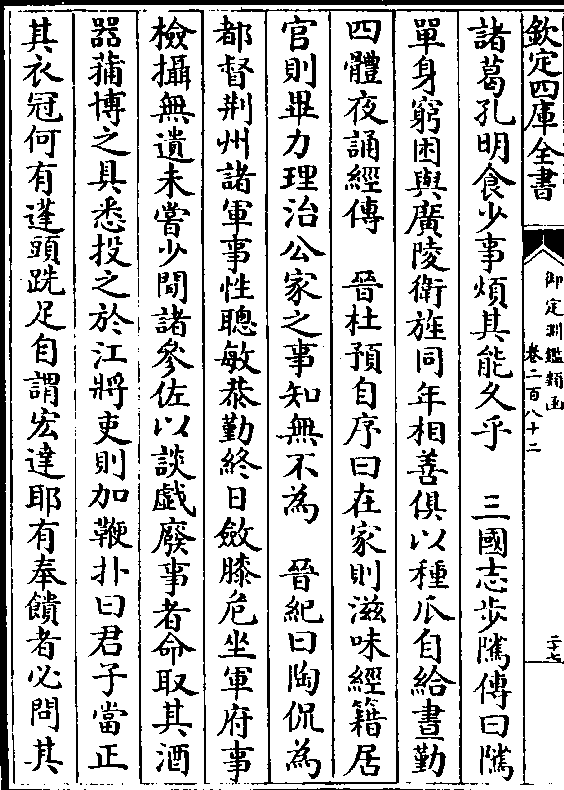 欽定四庫全書
御定淵鑑類函
卷二百八十二
二十七
諸葛孔明食少事煩其能久乎　三國志步隲傳曰隲
單身窮困與廣陵衛旌同年相善俱以種瓜自給晝勤
四體夜誦經傳　晉杜預自序曰在家則滋味經籍居
官則畢力理治公家之事知無不為　晉紀曰陶侃為
都督荆州諸軍事性聰敏恭勤終日斂膝危坐軍府事
檢攝無遺未嘗少間諸參佐以談戯廢事者命取其酒
器蒱博之具悉投之於江將吏則加鞭扑曰君子當正
其衣冠何有蓬頭跣足自謂宏達耶有奉饋者必問其